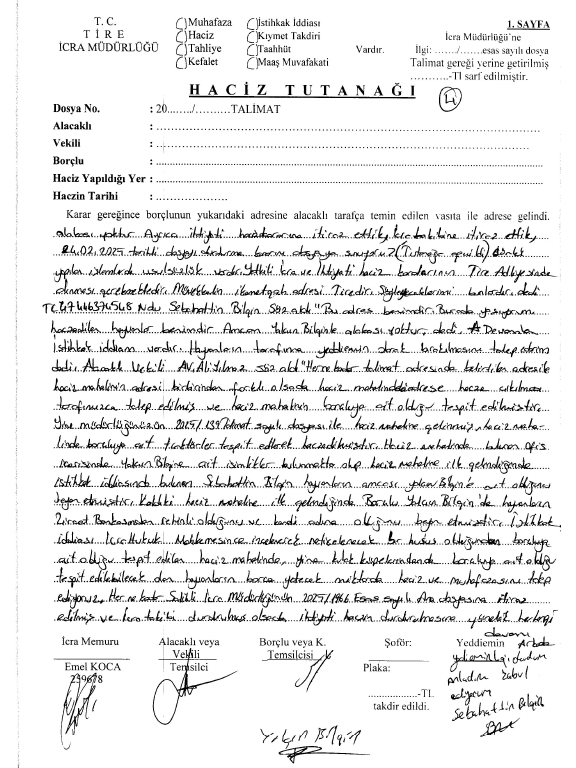 T. C.
T İ R E
İCRA MÜDÜRLÜĞÜ
Muhafaza
Haciz
Tahliye
Kefalet
İstihkak İddiası
Kıymet Takdiri
Taahhüt
Maaş Muvafakati
Vardır.
1. SAYFA
İcra Müdürlüğü'ne
İlgi: ....../......esas sayılı dosya
Talimat gereği yerine getirilmiş
...........-Tl sarf edilmiştir.
H A C İ Z T U T A N A Ğ I
Dosya No. : 20......./..........TALİMAT
Alacaklı :
Vekili :
Borçlu :
Haciz Yapıldığı Yer :
Haczin Tarihi :
Karar gereğince borçlunun yukarıdaki adresine alacaklı tarafça temin edilen vasıta ile adrese gelindi.
alakası yoktur. Ayrıca ihtiyati haciz kararına itiraz ettik, icra takibine itiraz ettik,
24.02.2025 tarihli dosyayı durdurma kararını dosyaya sunuyoruz
yapılan işlemlerde usulsüzlük vardır. Yetkili icra ve ihtiyati haciz kararlarının Tire Adliyesinde
alınması gerekmektedir. Müvekkilin ikametgah adresi Tiredir. Söyleyeceklerim bunlardır. dedi
Sebahattin Bilgin söz aldı "Bu adres benimdir. Burada yaşıyorum
haczedilen hayvanlar benimdir. Amcam Yalçın Bilginle alakası yoktur. dedi. Devamla
İstihkak iddiam vardır. Hayvanların tarafıma yediemin olarak bırakılmasını talep ederim
dedi. Alacaklı Vekili Av. Ali Yılmaz söz aldı "Her ne kadar talimat adresinde belirtilen adres ile
haciz mahalinin adresi birbirinden farklı olsada haciz mahalinde adrese hacze çıkılması
tarafımızca talep edilmiş ve haciz mahalinin borçluya ait olduğu tespit edilmiştir.
Yine müdürlüğünüzün 2025/139 talimat sayılı dosyası ile haciz mahaline gelinmiş, haciz maha
linde borçluya ait tespit edilerek haczedilmiştir. Haciz mahalinde bulunan ofis
içerisinde Yalçın Bilgine ait isimlikler bulunmakta olup haciz mahaline ilk gelindiğinde
İstihkak iddiasında bulunan Sebahattin Bilgin hayvanların amcası Yalçın Bilgin'e ait olduğunu
beyan etmiştir. Kaldıki haciz mahaline ilk gelindiğinde Borçlu Yalçın Bilgin'de hayvanların
Ziraat Bankasından rehinli olduğunu ve kendi adına olduğunu beyan etmiştir. İstihkak
iddiası İcra Hukuk Mahkemesince incelenerek neticelenecek bir husus olduğundan borçluya
ait olduğu tespit edilen haciz mahalinde, yine kulak küpelerindende borçluya ait olduğu
tespit edilebilecek olan hayvanların borca yetecek miktarda haciz ve muhafazasını talep
ediyoruz. Her ne kadar Salihli İcra Müdürlüğünün 2025/1966 Esas sayılı Ana dosyasına itiraz
edilmiş ve icra takibi durdurulmuş olsada, ihtiyati haczin durdurulmasına yönelik herhangi
devamı
İcra Memuru
Emel KOCA
239678
Alacaklı veya
Vekili
Temsilci
Borçlu veya K.
Temsilcisi
Şoför:
Plaka:
..............-TL
takdir edildi.
Yeddiemin
yedieminliği
anladım kabul
ediyorum
Sebahattin Bilgin
Yalçın Bilgin